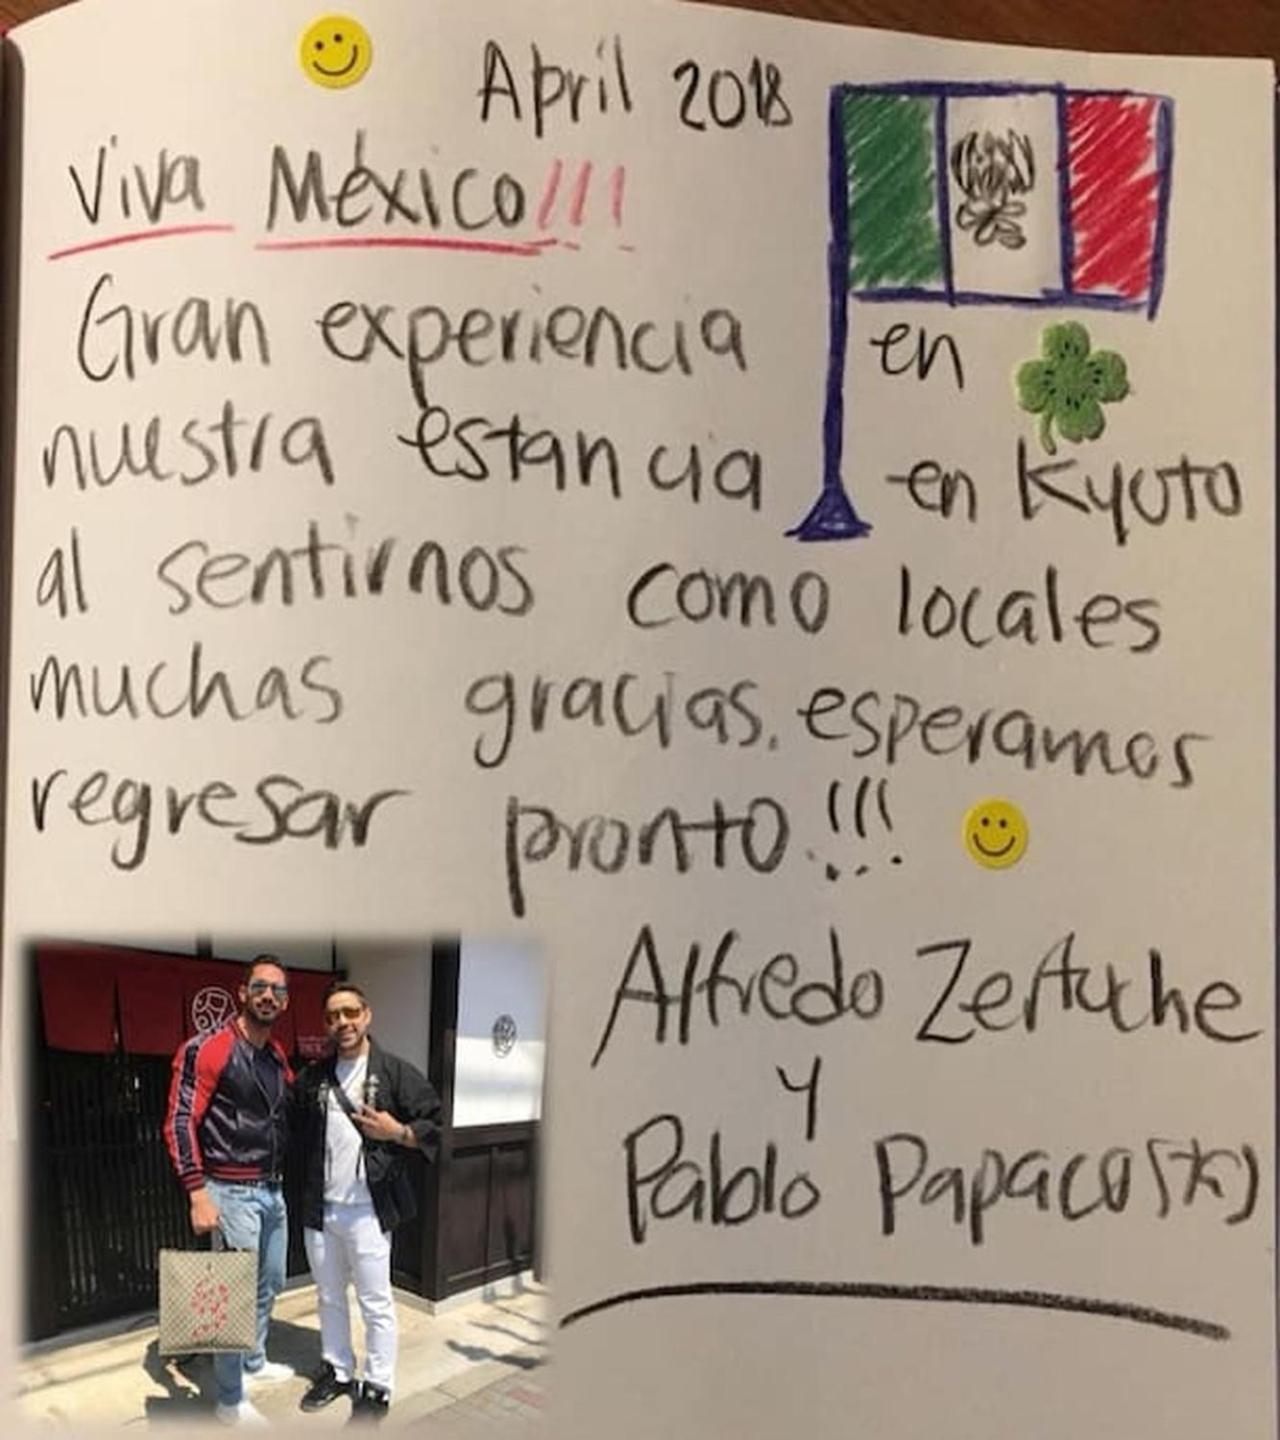 April 2018
Viva México!!!
Gran experiencia en
nuestra estancia en Kyoto
al sentirnos como locales
muchas gracias. esperamos
regresar pronto!!!
Alfredo Zertuche
y
Pablo